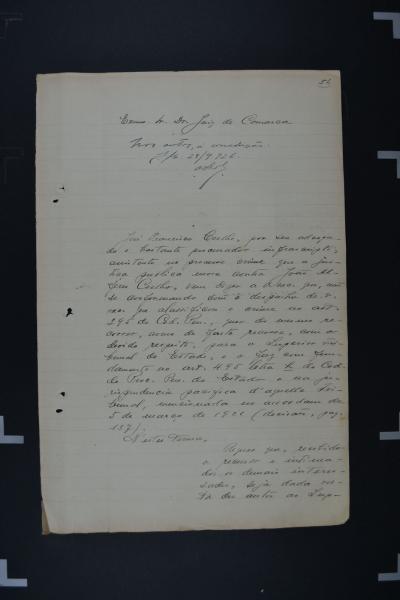 54
Exmo. Sr. Dr. Juiz de Comarca
Nos autos, a conclusão.
28/9/926
José Francisco Coelho, por seu advoga-
do e bastante procurador infrascripto,
assistente no processo crime que a jus-
tiça publica move contra João
Coelho, vem dizer a V. Exc. que, não
se conformando com o despacho de
que classificou o crime no art.
294 do Cod. Pen., quer do mesmo re-
correr, como de facto recorre, com o
devido respeito, para o Superior Tri-
bunal do Estado, e o faz com fun-
damento no art. 495 letra do Cod.
do Proc. Pen. do Estado e na ju-
risprudencia pacifica d'aquelle Tri-
bunal, mencionada no accordam de
5 de março de 1921 (decisão, pag.
137).
Nestes termos,
Requer que, recebido
o recurso e intima-
dos os demais interes-
sados, seja dada vis-
ta dos autos ao